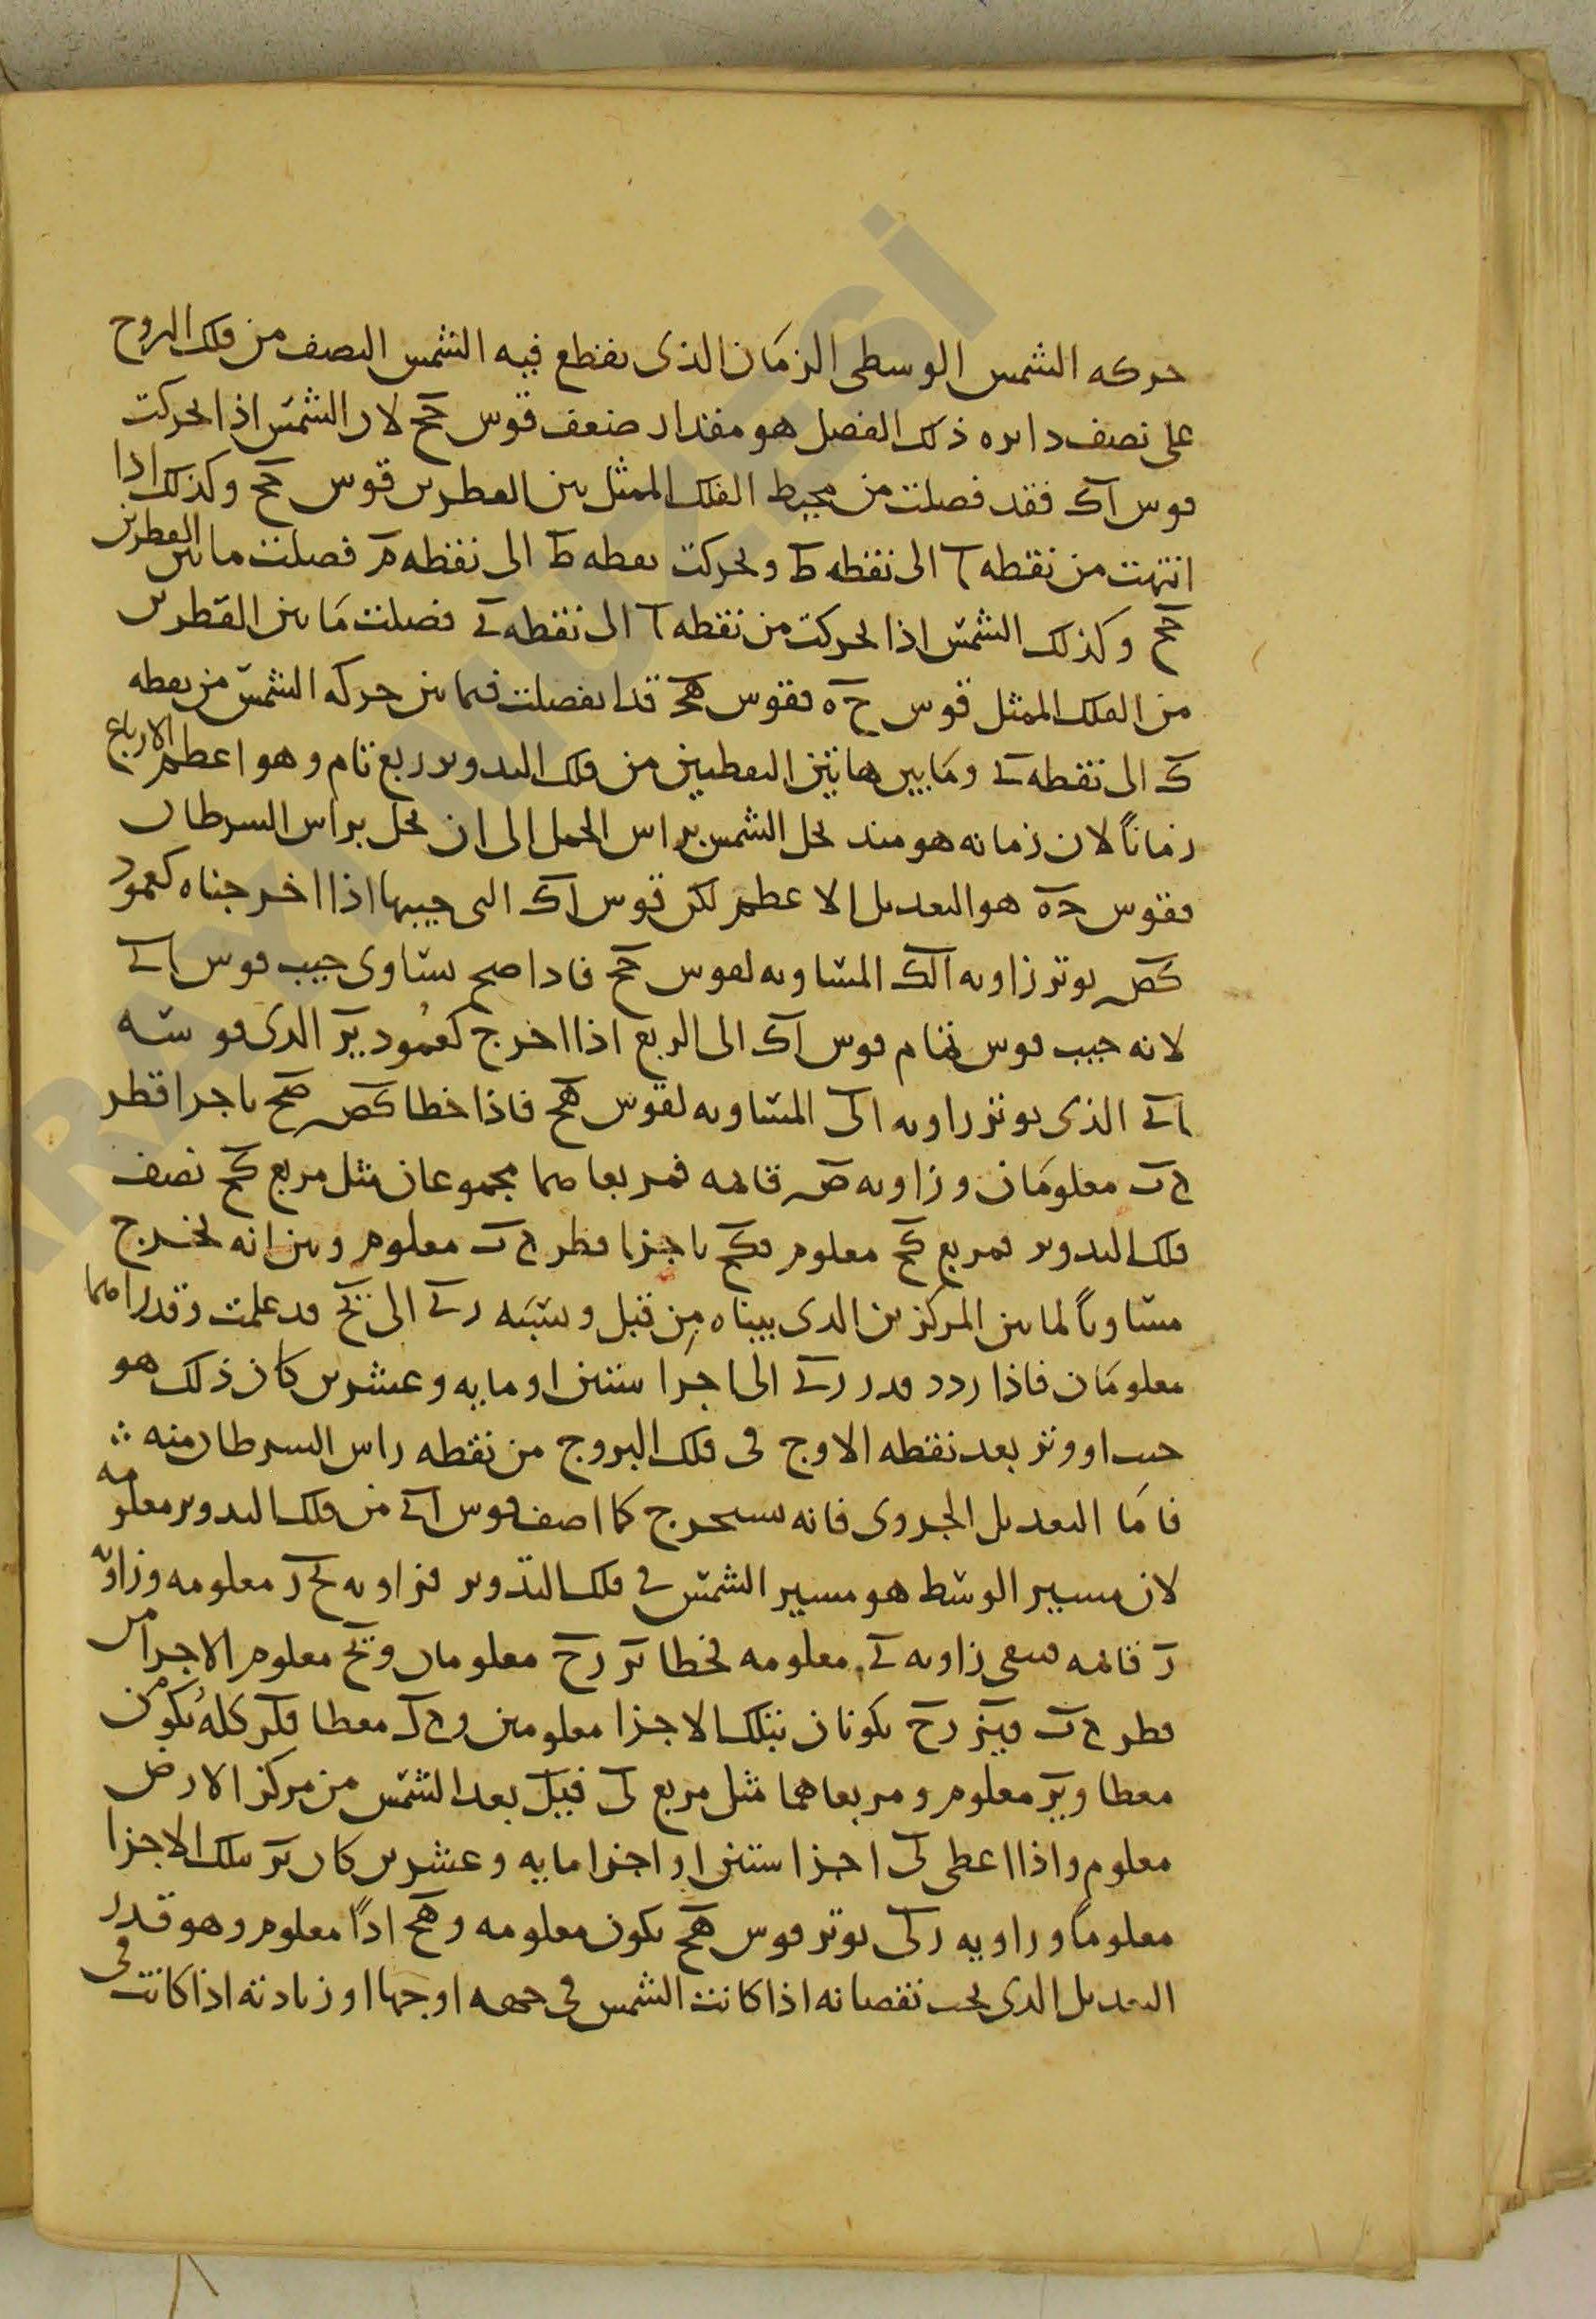 حركه الشمس الوسطى الزمان الذى يقطع فيه الشمس النصف من فلك البروج
على نصف دايره ذلك الفضل هو مقدار ضعف قوس حج لان الشمس اذا تحركت
قوس اك فقد فصلت من محيط الفلك الممثل بين القطرين قوس حج وكذلك اذا
انتهت من نقطه ا الى نقطه ط وتحركت نقطه ط الى نقطه م فصلت ما بين القطرين
حج وكذلك الشمس اذا تحركت من نقطه ا الى نقطه ى فصلت ما بين القطرين
من الفلك الممثل قوس ح ه فقوس هح قد انفصلت فيما بين حركه الشمس من نقطه
ك الى نقطه ى وما بين هاتين النقطتين من فلك التدوير ربع تام وهو اعظم الارباع
زمانا لان زمانه هو منذ تحل الشمس براس الحمل الى ان تحل براس السرطان
فقوس حه هو التعديل الاعظم لكن قوس اك التى جيبها اذا اخرجناه كعمود
كص يوتر زاويه الك المساويه لقوس حج فاذا صح يساوى جيب قوس اى
لانه جيب قوس تمام قوس اك الى الربع اذا اخرج كعمود ير الذى قوسه
اى الذى يوتر زاويه الى المساويه لقوس هح فاذا خطا كص صح باجزا قطر
ج ب معلومان وزاويه ص قايمه فمربعاهما مجموعان مثل مربع كح نصف
فلك التدوير فمربع كح معلوم فكح باجزا قطر ج ب معلوم وبين انه يخرج
مساويا لما بين المركزين الذى بيناه من قبل ونسبه رى الى يح قد علمت وقدراهما
معلومان فاذا ردد قدر رى الى اجزا ستين او مايه وعشرين كان ذلك هو
جيب او وتر بعد نقطه الاوج فى فلك البروج من نقطه راس السرطان منه ∴
فاما التعديل الجزوى فانه يستخرج كما اصف قوس اى من فلك التدوير معلومه
لان مسير الوسط هو مسير الشمس فى فلك التدوير فزاويه يح ر معلومه وزاويه
ر قايمه فبقى زاويه ى معلومه فخطا ير رح معلومان ويح معلوم الاجزا من
قطر ج ب فير رح يكونان بتلك الاجزا معلومين وح ل معطا فلر كله يكون
معطا وير معلوم ومربعاهما مثل مربع لى فيكن بعد الشمس من مركز الارض
معلوم واذا اعطى لى اجزا ستين او اجزا مايه وعشرين كان ير بتلك الاجزا
معلوما وزاويه رلى يوتر قوس هح يكون معلومه وهح اذا معلوم وهو قدر
التعديل الذى يجب نقصانه اذا كانت الشمس فى جهه اوجها او زيادته اذا كانت فى